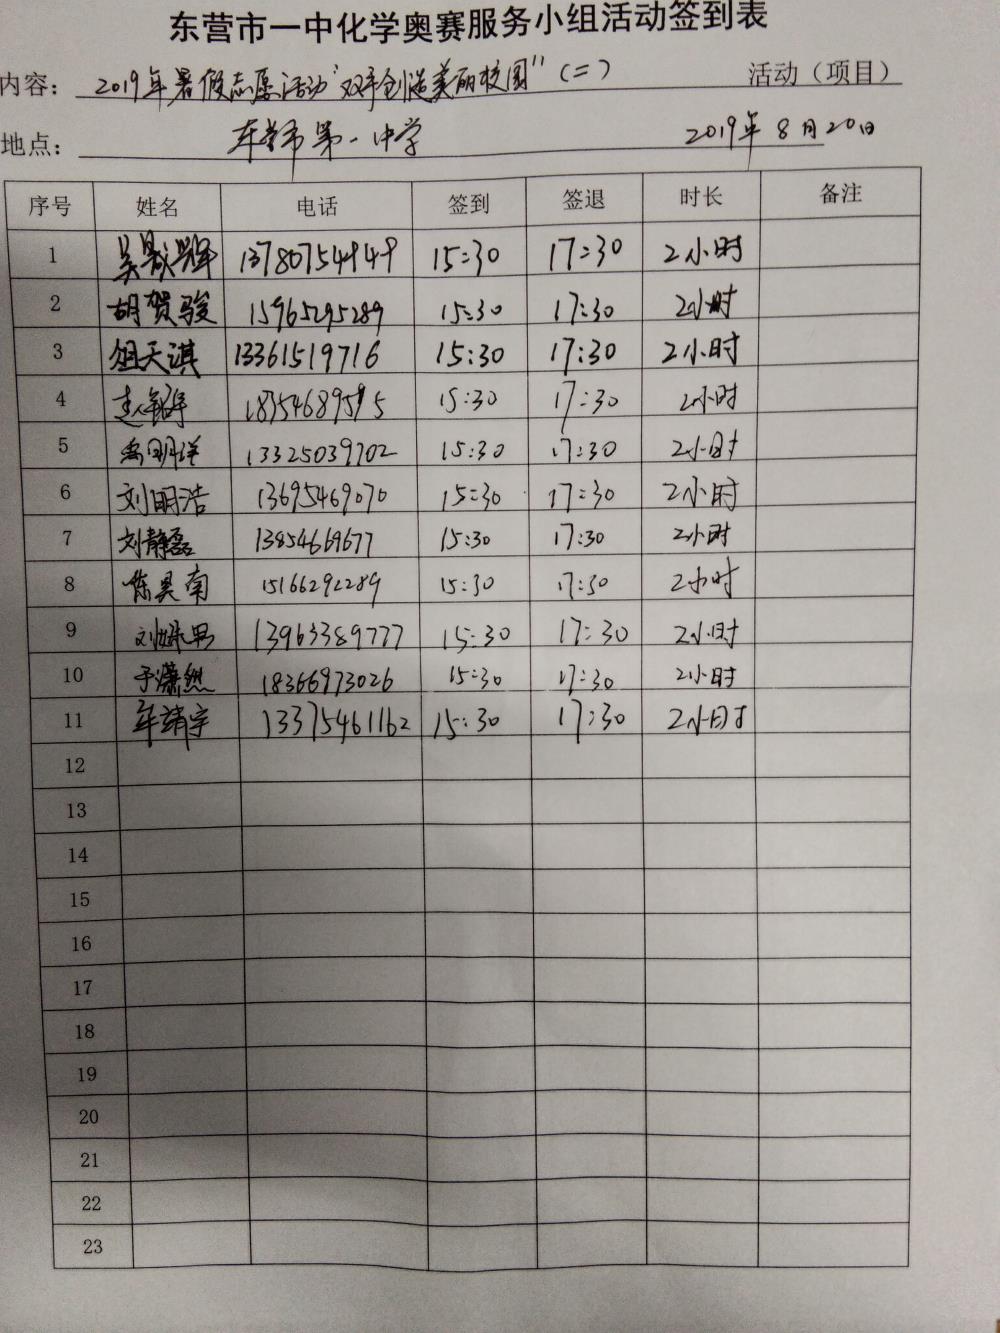 东营市一中化学奥赛服务小组活动签到表
内容： 2019年暑假志愿活动"双手创造美丽校园"（二） 活动（项目）
地点： 东营市第一中学 2019年8月20日
序号 姓名 电话 签到 签退 时长 备注
1 吴晟辉 13780754949 15:30 17:30 2小时
2 胡贺骏 15965295289 15:30 17:30 2小时
3 俎天淇 13361519716 15:30 17:30 2小时
4 15:30 17:30 2小时
5 13325039702 15:30 17:30 2小时
6 刘明浩 13695469070 15:30 17:30 2小时
7 刘静磊 13854669677 15:30 17:30 2小时
8 陈昊南 15166292289 15:30 17:30 2小时
9 13963389777 15:30 17:30 2小时
10 于潇然 18366973026 15:30 17:30 2小时
11 车靖宇 13375461162 15:30 17:30 2小时
12
13
14
15
16
17
18
19
20
21
22
23